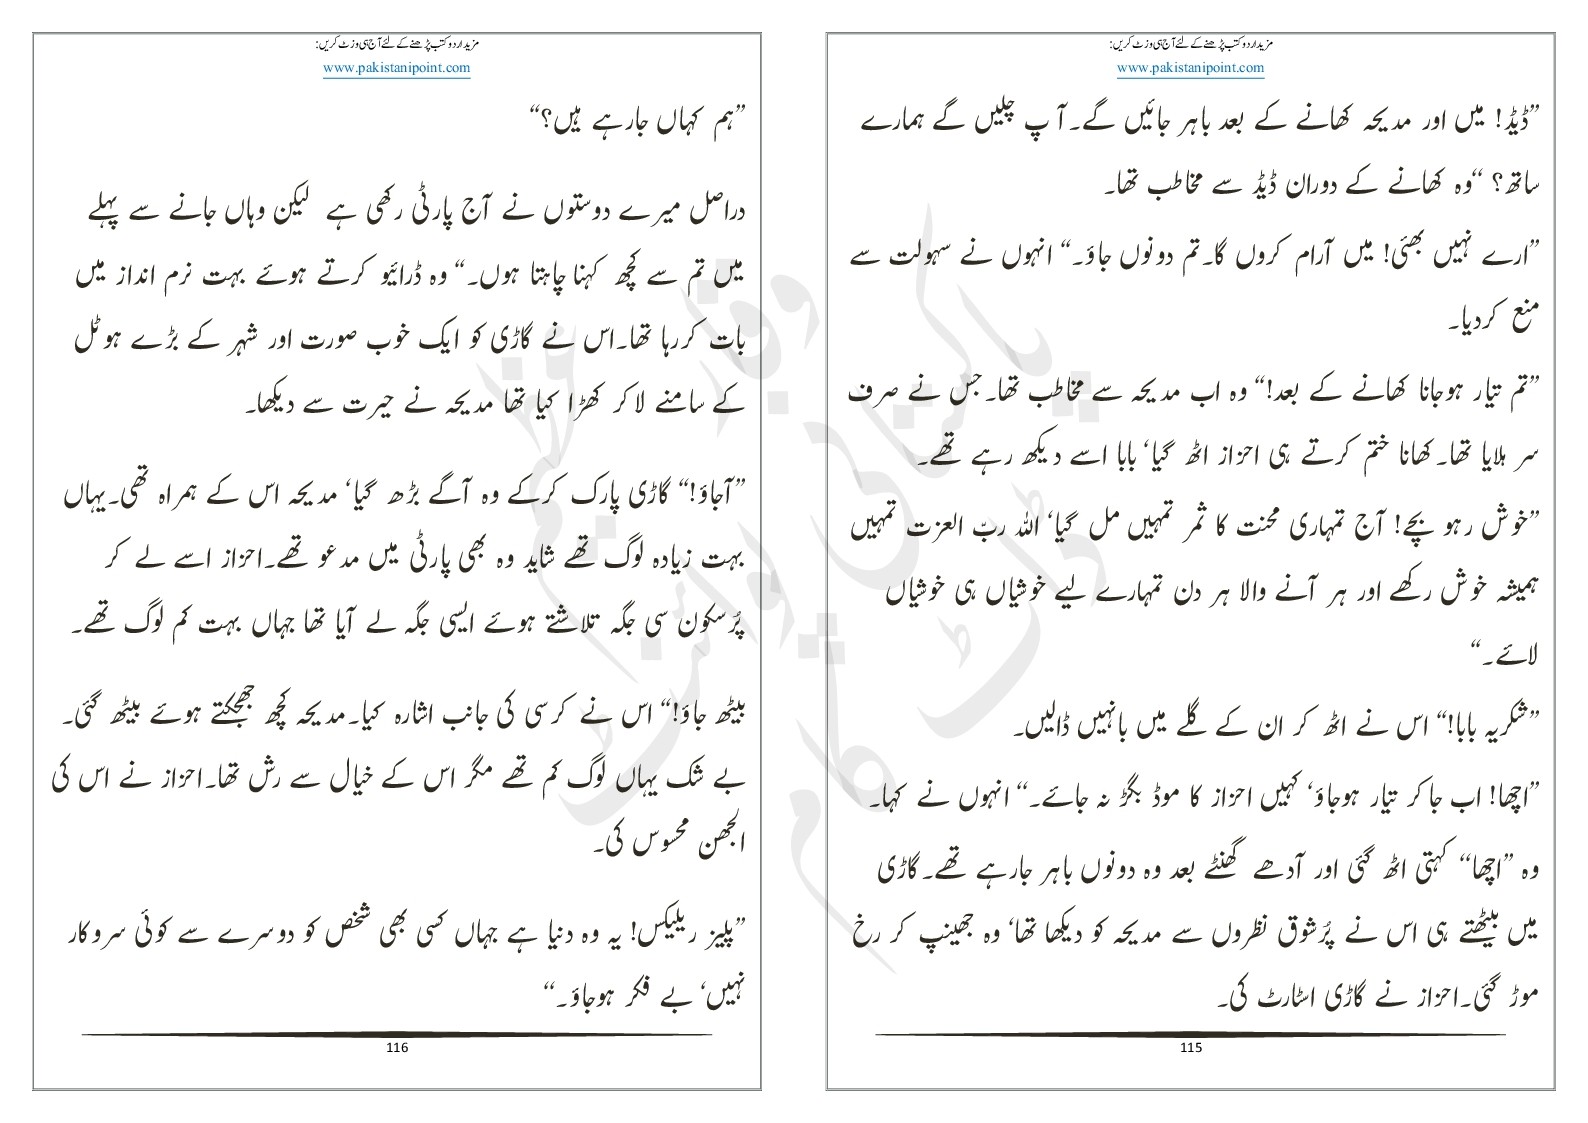 مزید اردو کتب پڑھنے کے لئے آج ہی وزٹ کریں:
www.pakistanipoint.com
”ڈیڈ! میں اور مدیحہ کھانے کے بعد باہر جائیں گے۔آ پ چلیں گے ہمارے
ساتھ؟ “وہ کھانے کے دوران ڈیڈ سے مخاطب تھا۔
”ارے نہیں بھئی! میں آرام کروں گا۔تم دونوں جاؤ۔“ انہوں نے سہولت سے
منع کردیا۔
”تم تیار ہوجانا کھانے کے بعد!“ وہ اب مدیحہ سے مخاطب تھا۔جس نے صرف
سر ہلایا تھا۔کھانا ختم کرتے ہی احزاز اٹھ گیا‘ بابا اسے دیکھ رہے تھے۔
”خوش رہو بچے! آج تمہاری محنت کا ثمر تمہیں مل گیا‘ اللہ ربّ العزت تمہیں
ہمیشہ خوش رکھے اور ہر آنے والا ہر دن تمہارے لیے خوشیاں ہی خوشیاں
لائے۔“
”شکریہ بابا!“ اس نے اٹھ کر ان کے گلے میں بانہیں ڈالیں۔
”اچھا! اب جاکر تیار ہوجاؤ‘ کہیں احزاز کا موڈ بگڑ نہ جائے۔“ انہوں نے کہا۔
وہ ”اچھا“ کہتی اٹھ گئی اور آدھے گھنٹے بعد وہ دونوں باہر جارہے تھے۔گاڑی
میں بیٹھتے ہی اس نے پرُشوق نظروں سے مدیحہ کو دیکھا تھا‘ وہ جھینپ کر رخ
موڑ گئی۔احزاز نے گاڑی اسٹارٹ کی۔
115
مزید اردو کتب پڑھنے کے لئے آج ہی وزٹ کریں:
www.pakistanipoint.com
”ہم کہاں جارہے ہیں؟“
دراصل میرے دوستوں نے آج پارٹی رکھی ہے لیکن وہاں جانے سے پہلے
میں تم سے کچھ کہنا چاہتا ہوں۔“ وہ ڈرائیو کرتے ہوئے بہت نرم انداز میں
بات کررہا تھا۔اس نے گاڑی کو ایک خوب صورت اور شہر کے بڑے ہوٹل
کے سامنے لاکر کھڑا کیا تھا مدیحہ نے حیرت سے دیکھا۔
”آجاؤ!“ گاڑی پارک کرکے وہ آگے بڑھ گیا‘ مدیحہ اس کے ہمراہ تھی۔یہاں
بہت زیادہ لوگ تھے شاید وہ بھی پارٹی میں مدعو تھے۔احزاز اسے لے کر
پرُسکون سی جگہ تلاشتے ہوئے ایسی جگہ لے آیا تھا جہاں بہت کم لوگ تھے۔
بیٹھ جاؤ!“ اس نے کرسی کی جانب اشارہ کیا۔مدیحہ کچھ جھجکتے ہوئے بیٹھ گئی۔
بے شک یہاں لوگ کم تھے مگر اس کے خیال سے رش تھا۔احزاز نے اس کی
الجھن محسوس کی۔
”پلیز ریلیکس! یہ وہ دنیا ہے جہاں کسی بھی شخص کو دوسرے سے کوئی سروکار
نہیں‘ بے فکر ہوجاؤ۔“
116
پاکستانی پوائنٹ ڈاٹ کام